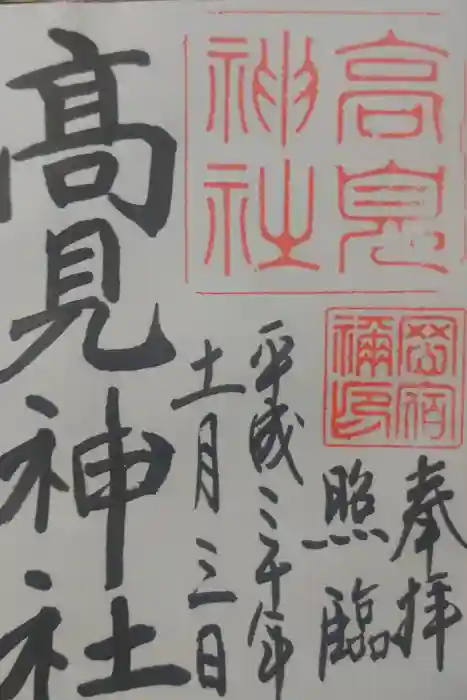 奉拝
照臨
平成三十年
十一月三日
髙見神社
高見神社